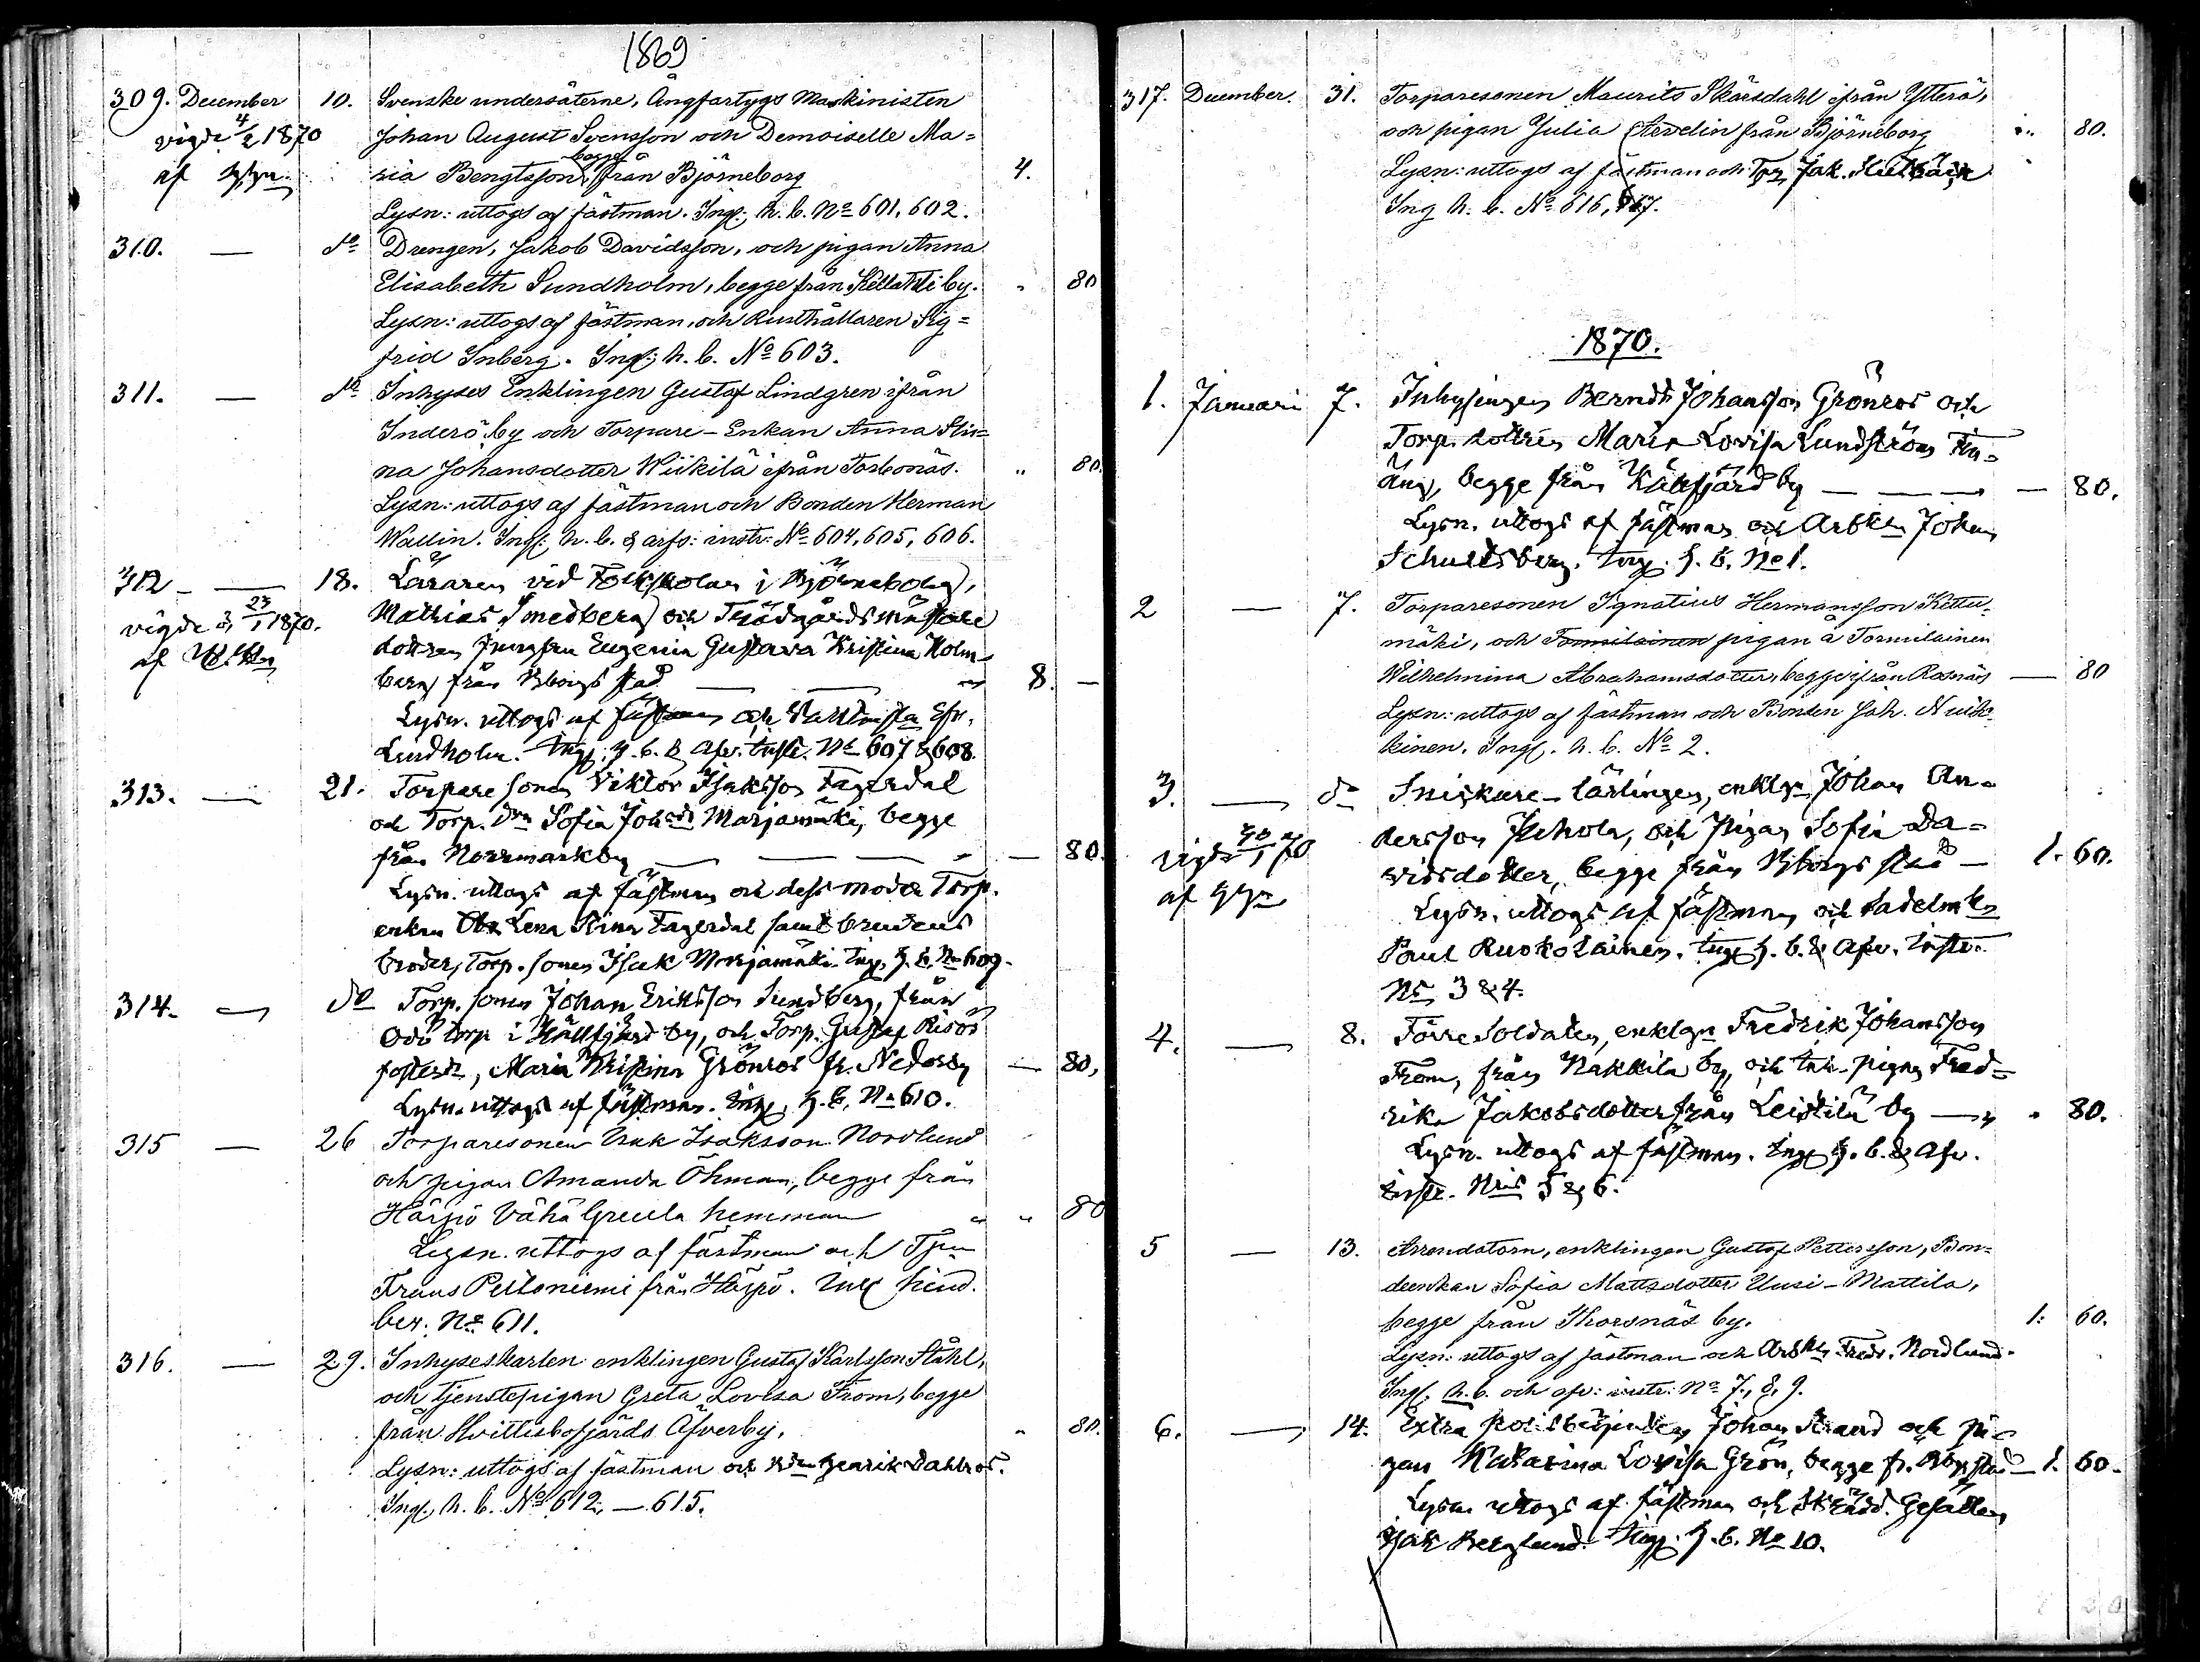 1869
309. December 10. Svenske undersåterne, Ångfartygs Maskinisten
vigde 4/2 1870 Johan August Svensson och Demoiselle Ma=
begge
af ria Bengtsson, från Björneborg 4.
Lysn: uttogs af fästman. Ingf. h. b. No 601, 602.
310. — do Drengen, Jakob Davidsson, och pigan Anna
Elisabeth Sundholm, begge från Kellahti by. " 80
Lysn: uttogs af fästman, och Rusthållaren Sig=
frid Inberg. Ingf. h. b. No 603.
311. — do Inhyses Enklingen Gustaf Lindgren ifrån
Inderö by och Torpare-Enkan Anna Sti=
na Johansdotter Wiikilä ifrån Torbonäs. " 80.
Lysn: uttogs af fästman och Bonden Herman
Wallin. Ingf. h. b. & arfs: instr: No 604, 605, 606.
312 — 18. Läraren vid Folkskolan i Björneborg,
vigde d. 23/1 1870. Mathias Smedberg och Trädgårdsmästare
af dottren Jungfru Eugenia Gustava Kristina Holm-
berg från Bborgs stad — — 8. —
Lysn. uttogs af fästman och
Lindholm. Ingf. h. b. & afv. instr. No 607 & 608.
313. — 21. Torpare sonen Viktor Isaksson Fagerdal
och Torp. dn Sofia Johsdr Marjamäki, begge
från Norrmarkby — — — 80.
Lysn. uttogs af fästman och dess moder Torp.
enkan Lena Stina Fagerdal samt brudens
broder, Torp. sonen Isak Marjamäki. Ingf. h. b. No 609.
314. — do Torp. sonen Johan Eriksson Sundberg, från
Odö torp i Hällfjärd by, och Torp. Gustaf Risös
fosterdr, Maria Kristina Grönros fr. Nederby — 80,
Lysn. uttogs af fästman. Ingf. h. b. No 610.
315 — 26 Torparesonen Isak Isaksson Nordlund
och pigan Amanda Öhman, begge från
Harjo Vähä Greula hemman " " 80
Lysn. uttogs af fästman och
Frans Peltoniemi från Harjo. Ingf hind.
ber. No 611.
316. — 29. Inhyseskarlen enklingen Gustaf Karlsson Ståhl,
och tjenstepigan Greta Lovisa From, begge
från Hvittisbofjärds Äfverby. " 80.
Lysn: uttogs af fästman och Henrik Dahlros.
Ingf. h. b. No 612, — 615.
317. December. 31. Torparesonen Maurits Skärsdahl ifrån Ytterö,
och pigan Julia från Björneborg " 80.
Lysn: uttogs af fästman och Jak.
Ing h. b. No 616, 617.
1870.
1. Januari 7. Inhysingen Berndt Johansson Grönros och
Torp. dottren Maria Lovisa Lundström
begge från by — — — — 80.
Lysn. uttogs af fästman och Arbkn Johan
Schultsberg. Ingf. h. b. No 1.
2 — 7. Torparesonen Ignatius Hermansson Kettu-
mäki, och Tomilainen pigan å Tormilainen
Wilhelmina Abrahamsdotter, begge ifrån Rosnäs — 80
Lysn: uttogs af fästman och Bonden Joh. Nuik-
kinen. Ingf. h. b. No 2.
3. — do Snickare-lärlingen, enklgn Johan An-
vigde 30/1 70 dersson och Pigan Sofia Da-
af vidsdotter, begge från Bborgs stad — 1. 60.
Lysn. uttogs af fästman och
Paul Ruokolainen. Ingf h. b. & Afv. instr.
No 3 & 4.
4. — 8. Förre Soldaten, enklgn Fredrik Johansson
From, från Nakkila by, och pigan Fred=
rika Jakobsdotter från Leistilä by — " " 80.
Lysn. uttogs af fästman. Ingf h. b. & Afv.
instr. Nris 5 & 6.
5 — 13. Arrendatorn, enklingen Gustaf Pettersson, Bon=
deenkan Sofia Mattsdotter Uusi-Mattila,
begge från Thorsnäs by. 1: 60.
Lysn: uttogs af fästman och Arbkn Fredr. Nordlund.
Ingf. h. b. och afv: instr: No 7, 8, 9.
6. — 14. Extra polisbetjenten Johan Strand och Pi-
gan Katarina Lovisa Grön, begge fr. Bbgs stad — 1. 60.
Lysn. uttogs af fästman och Skrädd. Gesällen
Isak Berglund. Ingf. h. b. No 10.